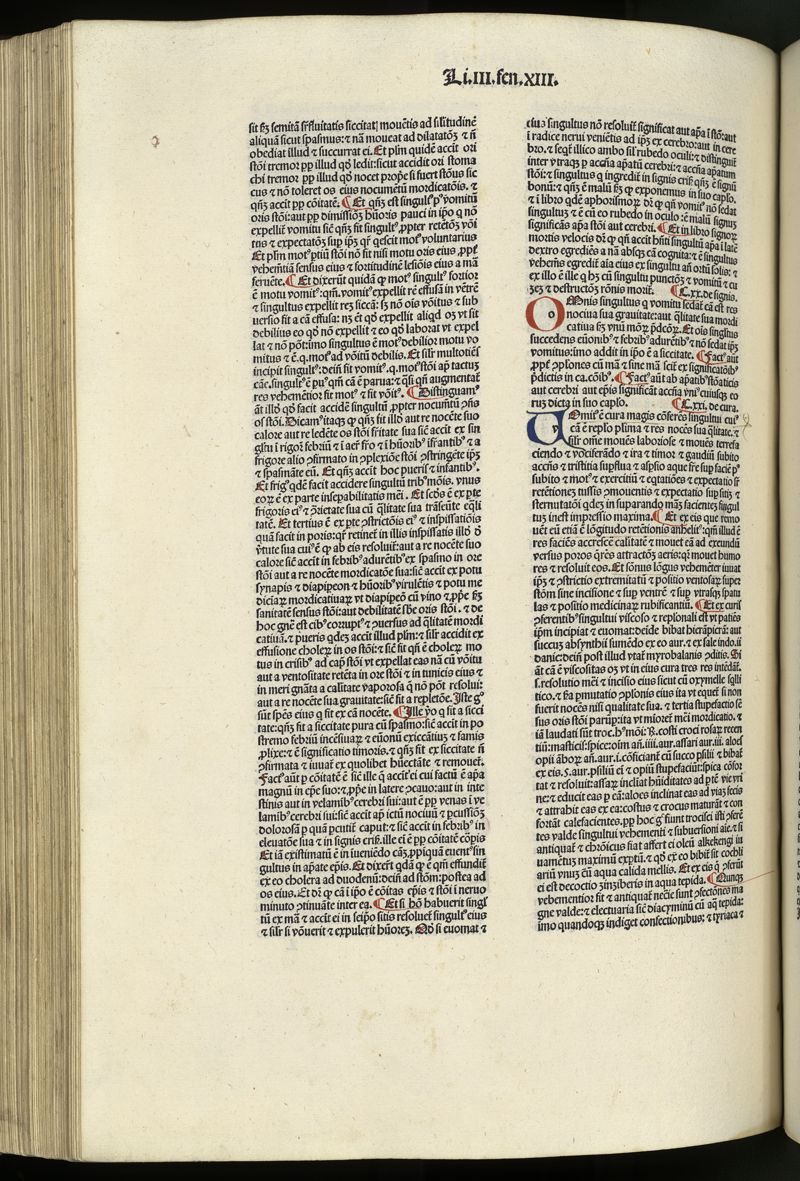 Li.III.fen.XIII.
sit ſm semitā sr̄fluitatis siccitati mouētis ad silitudinē
aliquā sicut spasmus: ⁊ nā moueat ad dilatatōꝫ ⁊ nō
obediat illud ⁊ succurrat ei. Et plm̄ quidē accit ori
stōi tremor pp illud qd̓ ledit: sicut accidit ori stoma
chi tremor pp illud qd̓ nocet propͤ si fuerit stōus sic
cus ⁊ nō toleret os eius nocumētū mordicatōis. ⁊
qn̄ꝫ accit pp cōitatē. Et qn̄ꝫ est singult᷒ p᷒ vomitū
oris stōi: aut pp dimissiōꝫ hūoris pauci in ipo q nō
expellit᷑ vomitu sic̄ qn̄ꝫ fit singult᷒ ꝓpter retētōꝫ või
tus ⁊ expectatōꝫ sup ipꝫ qr̄ qescit mot᷒ voluntarius
Et plm̄ mot᷒ ptiū stōi nō fit nisi motu oris eius ꝓpt᷑
vehemētiā sensus eius ⁊ fortitudinē lesiōis eius a mā
feruēte. Et dixerūt quidā ꝙ mot᷒ singult᷒ fortior
ē motu vomit᷒: qm̄. vomit᷒ expellit rē effusā in vētrē
⁊ singultus expellit reꝫ siccā: sꝫ nō ois võitus ⁊ sub
uersio fit a cā effusa: nꝫ ēt qd̓ expellit aliqd oꝫ vt sit
debilius eo qd̓ nō expellit ⁊ eo qd̓ laborat vt expel
lat ⁊ nō pōt: imo singultus ē mot᷒ debilior motu vo
mitus ⁊ ē.q.mot᷒ ad võitū debilis. Et silr multotiēs
incipit singult᷒: dein̄ fit vomit᷒.q.mot᷒ stōi apͥ tactuꝫ
cāe.singult᷒ ē pu᷒ qm̄ cā ē parua: ⁊ qsi qn̄ augmentat᷑
res vehemētior fit mot᷒ ⁊ fit võit᷒. Distinguam᷒
āt illd̓ qd̓ facit accidē singultū ꝓpter nocumētū ꝯn̄s
os stōi. Dicam᷒ itaqꝫ ꝙ qn̄ꝫ fit illd̓ aut re nocēte suo
calore aut re ledēte os stōi fr̄itate sua sic̄ accit ex sin
gltu ī rigoꝝ febriū ⁊ i aer̄ fr̄o ⁊ i hūorib᷒ ifr̄antib᷒ ⁊ a
frigore alio ꝯfirmato in ꝯplexiōe stōi ꝯstringēte ipꝫ
⁊ spasmāte eū. Et qn̄ꝫ accit hoc pueris ⁊ infantib᷒.
Et frig᷒ qdē facit accidere singultū trib᷒ mōis. vnus
eoꝝ ē ex parte insepabilitatis mei. Et scd̓s ē ex pte
frigoris ei᷒ ⁊ ꝓprietate sua cū q̄litate sua trāseūte eq̄li
tatē. Et tertius ē ex pte ꝯstrictōis ei᷒ ⁊ inspissatiōis
quā facit in poris: qr̄ retinet᷑ in illis inspissatis illd̓ d̓
v̓tute sua cui᷒ ē ꝙ ab eis resoluit᷑: aut a re nocēte suo
calore sic̄ accit in febrib᷒ adurētib᷒ ex spasmo in ore
stōi aut a re nocēte mordicatōe sua: sic̄ accit ex potu
synapis ⁊ diapipeon ⁊ hūorib᷒ virulētis ⁊ potu me
dicīaꝝ mordicatiuaꝝ vt diapipeō cū vino ⁊ ꝓpͤ sꝫ
sanitatē sensus stōi: aut debilitatē sb̄e oris stōi. ⁊ de
hoc gn̄e est cib᷒ corrupt᷒ ⁊ ꝯuersus ad q̄litatē mordi
catiuā. ⁊ pueris qdeꝫ accit illud plm̄: ⁊ silr accidit ex
effusione choleꝝ in os stōi: ⁊ sic̄ fit qn̄ ē choleꝝ mo
tus in crisib᷒ ad capͥ stōi vt expellat eas nā cū võitu
aut a ventositate retēta in ore stōi ⁊ in tunicis eius ⁊
in meri gnāta a calitate vaporosa q̄ nō pōt resolui:
aut a re nocēte sua grauitate: sic̄ fit a repletōe. Iste g᷒
sūt spēs eius q̄ fit ex cā nocēte. Ille v̓o q̄ fit a sicci
tate: qn̄ꝫ fit a siccitate pura cū spasmo: sic̄ accit in po
stremo febriū incēsiuaꝝ ⁊ euōnū exicātiuꝫ ⁊ famis
ꝓlixe: ⁊ ē significatio timoris. ⁊ qn̄ꝫ fit ex siccitate n̄
ꝯfirmata ⁊ iuuat᷑ ex quolibet hūectāte ⁊ remouet᷑.
Fact᷒ aūt p cōitatē ē sic̄ ille q̄ accit ei cui factū ē apͣa
magnū in epͤe suo: ⁊ ꝓpͤe in latere ꝯcauo: aut in inte
stinis aut in velamib᷒ cerebri sui: aut ē pp venas i ve
lamib᷒ cerebri sui: sic̄ accit apͥ ictū nociuū ⁊ pcussiōꝫ
dolorosā p quā pcutit᷑ caput: ⁊ sic̄ accit in febrib᷒ in
eleuatōe sua ⁊ in signis crisꝫ. ille ei ē pp cōitatē copīs
Et iā existimatū ē in iueniēdo cāꝫ ꝓpīquā euent᷒ sin
gultus in apate epīs. Et dixer̄t qdā ꝙ ē qm̄ effundit᷑
ex eo cholera ad duodenū: dein̄ ad stōm: postea ad
os eius. Et dr̄ ꝙ cā i ipo ē cōitas epīs ⁊ stōi i neruo
minuto ꝯtinuāte inter ea. Et si hō habuerit singl᷒
tū ex mā ⁊ accit ei in seipo sitis resoluet᷑ singult᷒ eius
⁊ silr si võuerit ⁊ expulerit hūoreꝫ. Qd̓ si euomat ⁊
eius singultus nō resoluit᷑ significat aut apͣa ī stōi: aut
i radice nerui veniētis ad ipꝫ ex cerebro: aut in cere
bro. ⁊ seqt᷑ illico ambo sil rubedo oculi: ⁊ distinguit᷑
inter vtraqꝫ p accn̄a apͣatū cerebri: ⁊ accn̄a apͣatum
stōi: ⁊ singultus q̄ ingredit᷑ in signis crisꝫ qn̄ꝫ ē signū
bonū: ⁊ qn̄ꝫ ē malū sꝫ ꝙ exponemus in suo capͦlo.
⁊ i libro qdē aphorismoꝝ dr̄ ꝙ qn̄ vomit᷒ nō sedat
singultuꝫ ⁊ ē cū eo rubedo in oculo: ē malū signuꝫ
significās apͣa stōi aut cerebri. Et in libro signoꝝ
mortis velocis dr̄ ꝙ qn̄ accit hn̄ti singultū apͣa i late
dextro egrediēs a nā absqꝫ cā cognita: ⁊ ē singultus
vehemēs egredit᷑ aīa eius ex singultu añ ortū solis: ⁊
ex illo ē ille q̄ hꝫ cū singultu punctōꝫ ⁊ vomitū ⁊ cu
ꝫeꝫ ⁊ destructōꝫ rōnis morit᷑. C.xx.de signis.
Omnis singultus q̄ vomitu sedat᷑ cā est res
nociua sua grauitate: aut q̄litate sua mordi
catiua sꝫ vnū moꝝ p̄dcōꝝ. Et ois singltus
succedens euōnib᷒ ⁊ febrib᷒ adurētib᷒ ⁊ nō sedat ipꝫ
vomitus: imo addit in ipo ē a siccitate. Fact᷒ aūt
ꝓpt᷑ ꝯplōnes cū mā ⁊ sine mā scit᷑ ex significatōib᷒
p̄dictis in ca.cōib᷒. Fact᷒ aūt ab apͣatib᷒ stōaticis
aut cerebri aut epīs significāt accn̄a vni᷒cuiusqꝫ eo
rum dicta in suo capͦlo. C.xxi.de cura.
Vomit᷒ ē cura magis cōferēs singultui cui᷒
cā ē repl̓o plima ⁊ res nocēs sua q̄litate. ⁊
silr oīne mouēs laboriose ⁊ mouēs terrefa
ciendo ⁊ vociferādo ⁊ ira ⁊ timor ⁊ gaudiū subito
accn̄s ⁊ tristitia supflua ⁊ aspsio aque fr̄e sup faciē p᷒
subito ⁊ mot᷒ ⁊ exercitiū ⁊ eqtatōes ⁊ expectatio sr̄
retētiōneꝫ tussis ꝓmouentis ⁊ expectatio sup sitiꝫ ⁊
sternutatōi qdeꝫ in suparando māꝫ facientē singul
tuꝫ inest impressio maxima. Et ex eis que remo
uēt eū etiā ē lōgitudo retētionis anhelit᷒: qm̄ illud ē
res faciēs accrescē calitatē ⁊ mouet cā ad exeundū
versus poros q̄rēs attractōꝫ aeris: qr̄ mouet humo
res ⁊ resoluit eos. Et sōnus lōgus vehemēter iuuat
ipꝫ ⁊ ꝯstrictio extremitatū ⁊ positio ventosaꝝ super
stōm sine incisione ⁊ sup ventrē ⁊ sup vtrasqꝫ spatu
las ⁊ positio medicinaꝝ rubificantiū. Et ex curis
ꝯferentib᷒ singultui viscoso ⁊ repl̓onali est vt patiēs
ipm̄ incipiat ⁊ euomat: deīde bibat hierāpicrā: aut
succuꝫ absynthii sumēdo ex eo aur.⁊ ex sale indo.ii
danic: dein̄ post illud vtat᷑ myrobalanis ꝯditis. Si
āt cā ē viscositas oꝫ vt in eius cura tres res intēdāt᷑.
s.resolutio mēi ⁊ incisio eius sicut cū oxymelle sqlli
tico.⁊ scd̓a pmutatio ꝯplonis eius ita vt equet᷑ si non
fuerit nocēs nisi qualitate sua.⁊ tertia stupefactio sē
sus oris stōi parūp: ita vt miorēt mēi mordicatio.⁊
iā laudati sūt troc.h᷒mōi: ℞.costi croci rosaꝝ recen
tiū: masticis: spice: oīm añ.iiii.aur.assari aur.iii.aloes
opii ābaꝝ añ.aur.i.cōficiant᷑ cū succo psilii ⁊ bibāt᷑
ex eis.s.aur.psiliū ei ⁊ opiū stupefaciūt: spica cōfor
tat ⁊ resoluit: assaꝝ īclīat hūiditates ad ptē vie vri
ne: ⁊ educit eas p cā: aloes inclinat eas ad viaꝫ fecis
⁊ attrahit eas ex ea: costus ⁊ crocus maturāt ⁊ con
fortāt calefacientes. pp hoc g᷒ fiunt trocisci isti ꝯferē
tes valde singultui vehementi ⁊ subuersioni aīe.⁊ si
antiquat᷑ ⁊ chrōicus fiat affert ei oleū alkekengi iu
uamētuꝫ maximū exptū.⁊ qd̓ ex eo bibit᷑ sit cochli
ariū vnuꝫ cū aqua calida mellis. Et ex eis q̄ ꝯferūt
ei est decoctio zinziberis in aqua tepida. Nunqꝫ
vehementior fit ⁊ antiquat᷑ necīe sunt ꝯfectōnes ma
gne valde: ⁊ electuaria sic̄ diacyminū cū aq̄ tepida:
imo quandoqꝫ indiget confectionibus: ⁊ tyriaca ⁊